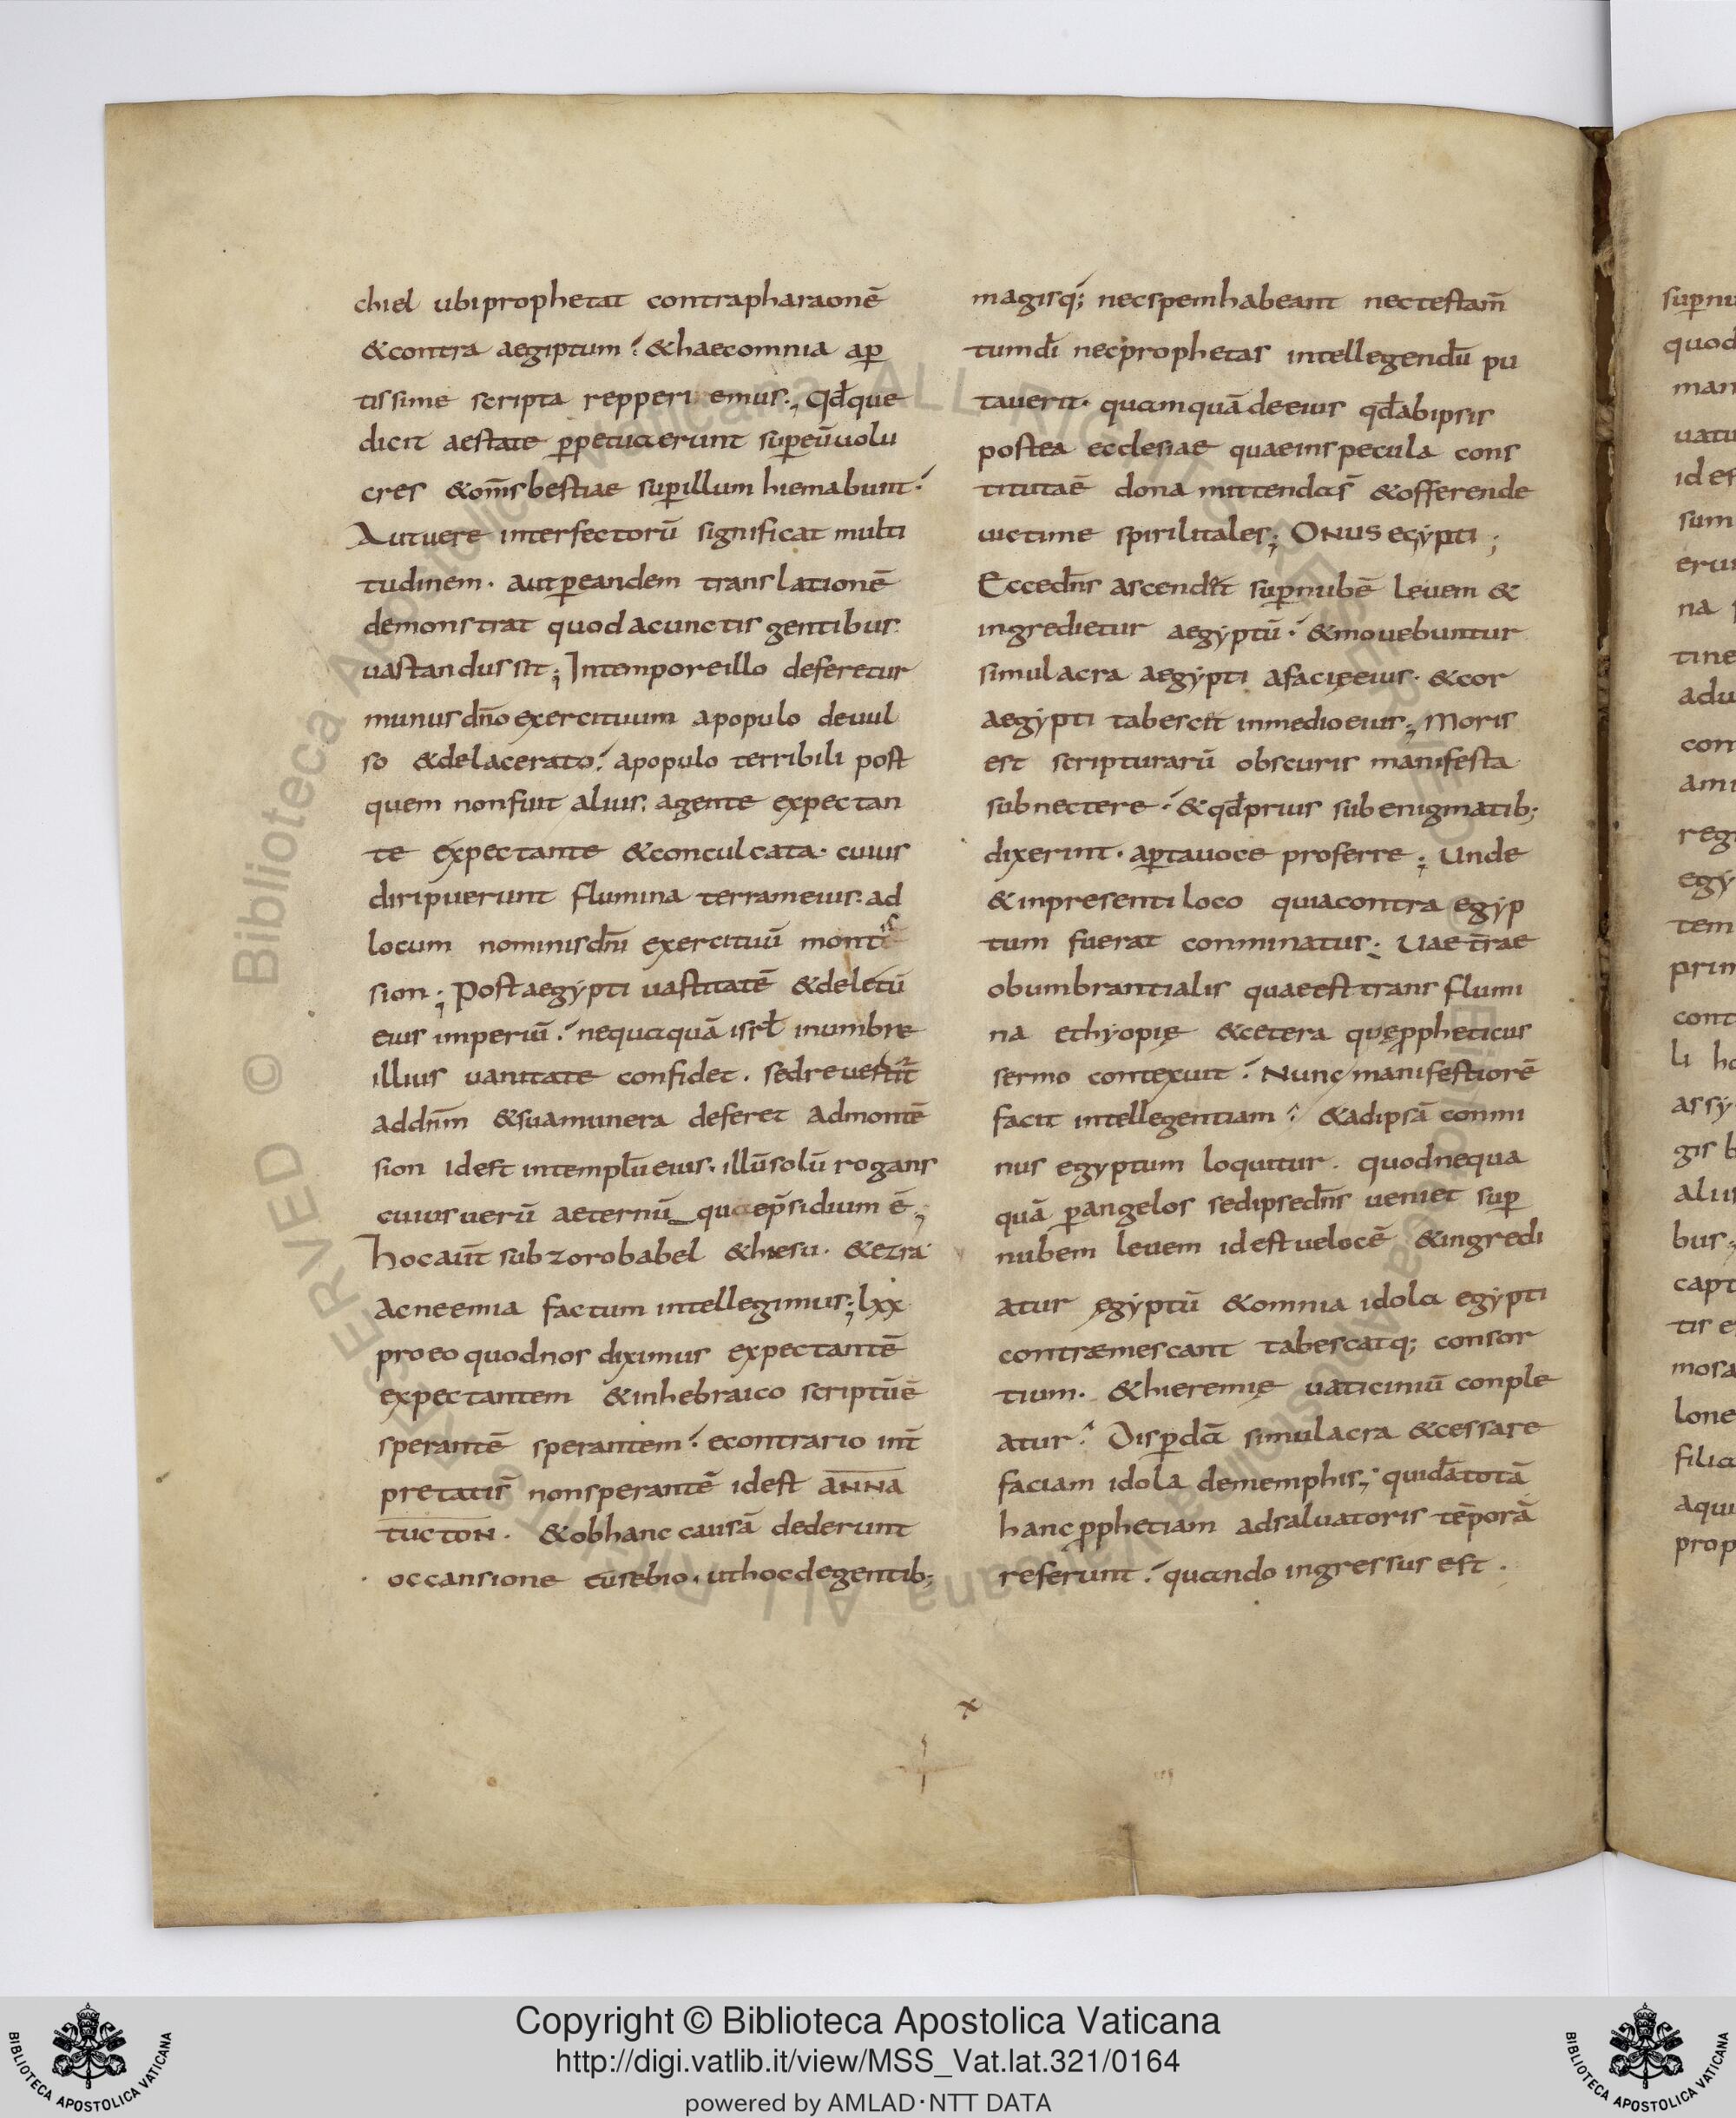 chiel ubiprophetat contrapharaonē
&contra aegiptum: &haecomnia ap̱
tissime scripta repperi emus; Qđque
dicit aestate p̱petuaerunt sup̱eūuolu
cres &om̅sbestiae sup̱illum hiemabunt:
Autuere interfectorū significat multi
tudinem. autp̱eandem translationē
demonstrat quodacunctis gentibus
uastandussit; Intemporeillo deferetur
munusdn̅oexercituum apopulo deuul
so &delacerato: apopulo terribili post
quem nonfuit alius. agente expectan
te expectante &conculcata. cuius
diripuerunt flumina terrameius. ad
locum nominisdn̅i exercituū montis
sion; Postaegypti uastitatē &deletū
eius imperiū: nequaquā isrł inumbre
illius uanitate confidet. sedreuertit̅
addn̅m &suamunera deferet admontē
sion idest intemplūeius. illūsolū rogans
cuiusuerū aeternū_quaep̅sidium ē;
hocaut̅ subzorobabel &hiesu. &ezra
acneemia factum intellegimus; lxx
proeo quodnos diximus expectantē
expectantem &inhebraico scriptūē
sperantē sperantem: econtrario int̅
pretatis̅ nonsperantē idest ANNA
TUCTON. &obhanc causā dederunt
occansione eusebio. uthocdegentib;
magisq; necspemhabeant nectestam̅
tumdi̅ necprophetas intellegendū pu
tauerit. quamquā deeius qđabipsis
postea ecclesiae quaeinspecula cons
titutaē dona mittendas̅ &offerende
uictime spirilitales; ONUS egypti;
Eccedn̅s ascendet sup̱nubē leuem &
ingredietur aegyptū: &mouebuntur
simulacra aegypti afacięeius. &cor
aegypti tabescit inmedioeius; Moris
est scripturarū obscuris manifesta
subnectere: &qđprius subenigmatib;
dixerint. ap̱tauoce proferre; Unde
&inpresenti loco quiacontra egyp
tum fuerat conminatus; Uae trae
obumbrantialis quaeesttrans flumi
na ethyopię &cetera quęp̱pheticus
sermo contexuit: Nunc manifestiorē
facit intellegentiam: &adipsā conmi
nus egyptum loquitur. quodnequa
quā p̱angelos sedipsedn̅s ueniet sup̱
nubem leuem idestuelocē &ingredi
atur ęgyptū &omnia idola egypti
contraemescant tabescatq; consor
tium. &hieremię uaticiniū conple
atur: Disp̱dā simulacra &cessare
faciam idola dememphis; quidātotā
hancp̱phetiam adsaluatoris tēporā
referunt: quando ingressus est.
x
supnu
quod
man
uatu
id est
sum
erun
na
tine
adu
con
ami
reg
egy
tem
prin
cont
li
assy
gis
alius
bus
capt
tis
mosa
lone
filia
aqui
prop
Biblioteca Apostolica Vaticana ALL RIGHTS RESERVED ©
Copyright © Biblioteca Apostolica Vaticana
http://digi.vatlib.it/view/MSS_Vat.lat.321/0164
powered by AMLAD·NTT DATA
BIBLIOTECA APOSTOLICA VATICANA
BIBLIOTECA APOSTOLICA VATICANA